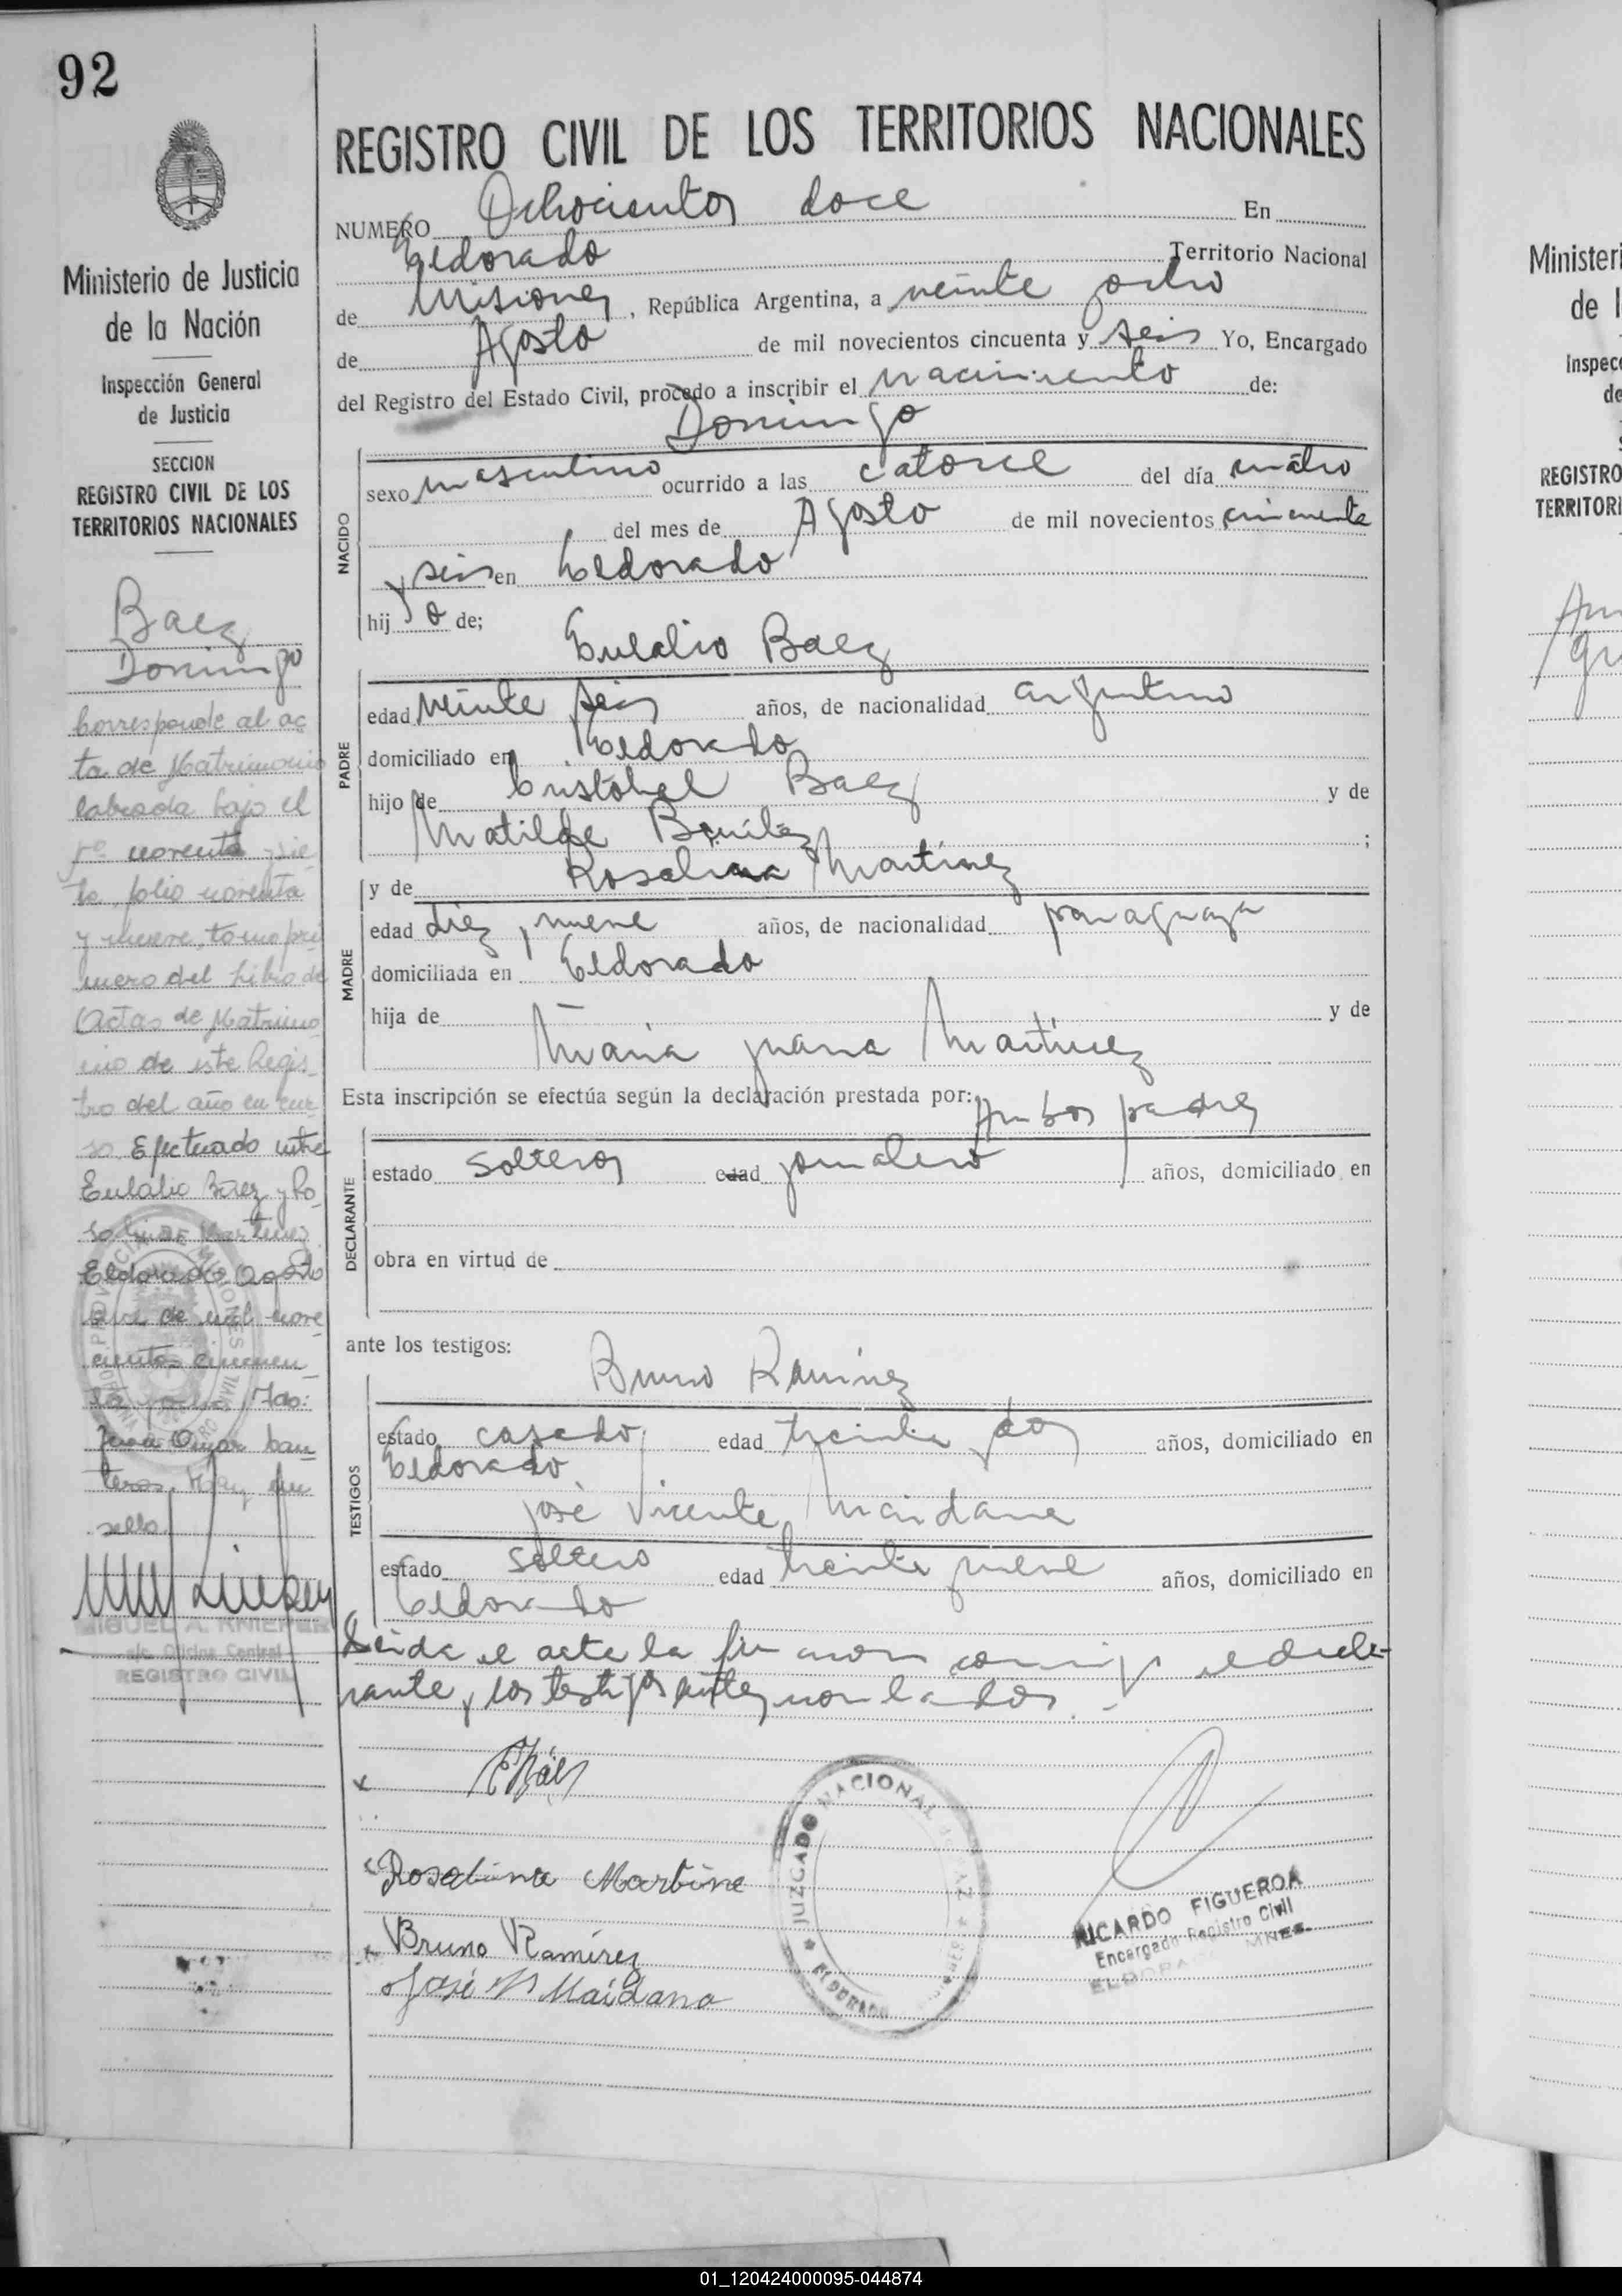 92
Ministerio de Justicia
de la Nación
Inspección General
de Justicia
SECCION
REGISTRO CIVIL DE LOS
TERRITORIOS NACIONALES
Baez
Domingo
Corresponde al ac
ta de Matrimonio
labrada bajo el
nº noventa y sie
te, folio noventa
y nueve, tomo pri
mero del Libro de
Actas de Matrimo
nio de este Regis
tro del año en cur
so. Efectuado entre
Eulalio Báez y Ro
salina Martinez
Eldorado, Agosto
de mil nove
cientos cincuen
ta y ocho
Juan Omar
Hay un
sello.
MIGUEL A. KNIEPER
a/c. Oficina Central
REGISTRO CIVIL
REGISTRO CIVIL DE LOS TERRITORIOS NACIONALES
NUMERO Ochocientos doce En
Eldorado Territorio Nacional
de Misiones, República Argentina, a veinte y ocho
de Agosto de mil novecientos cincuenta y seis Yo, Encargado
del Registro del Estado Civil, procedo a inscribir el nacimiento de:
Domingo
NACIDO
sexo masculino ocurrido a las catorce del día cuatro
del mes de Agosto de mil novecientos cincuenta
y seis en Eldorado
hijo de;
Eulalio Baez
PADRE
edad veinte y seis años, de nacionalidad argentino
domiciliado en Eldorado
hijo de Cristóbal Baez y de
Matilde Benítez ;
y de Rosalina Martínez
MADRE
edad diez y nueve años, de nacionalidad paraguaya
domiciliada en Eldorado
hija de y de
María Juana Martínez
Esta inscripción se efectúa según la declaración prestada por: Ambos padres
DECLARANTE
estado solteros edad jornalero años, domiciliado en
obra en virtud de
ante los testigos:
Bruno Ramírez
TESTIGOS
estado casado edad treinta y dos años, domiciliado en
Eldorado
José Vicente Maidana
estado soltero edad treinta y nueve años, domiciliado en
Eldorado
Leida el acta la firmaron conmigo el decla-
rante y los testigos antes nombrados.-
Rosalina Martine
Bruno Ramírez
José V Maidana
JUZGADO NACIONAL
ELDORADO
RICARDO FIGUEROA
Encargado Registro Civil
ELDORADO MNES.
Minister
de l
Inspec
de
REGISTRO
TERRITORI
01_120424000095-044874